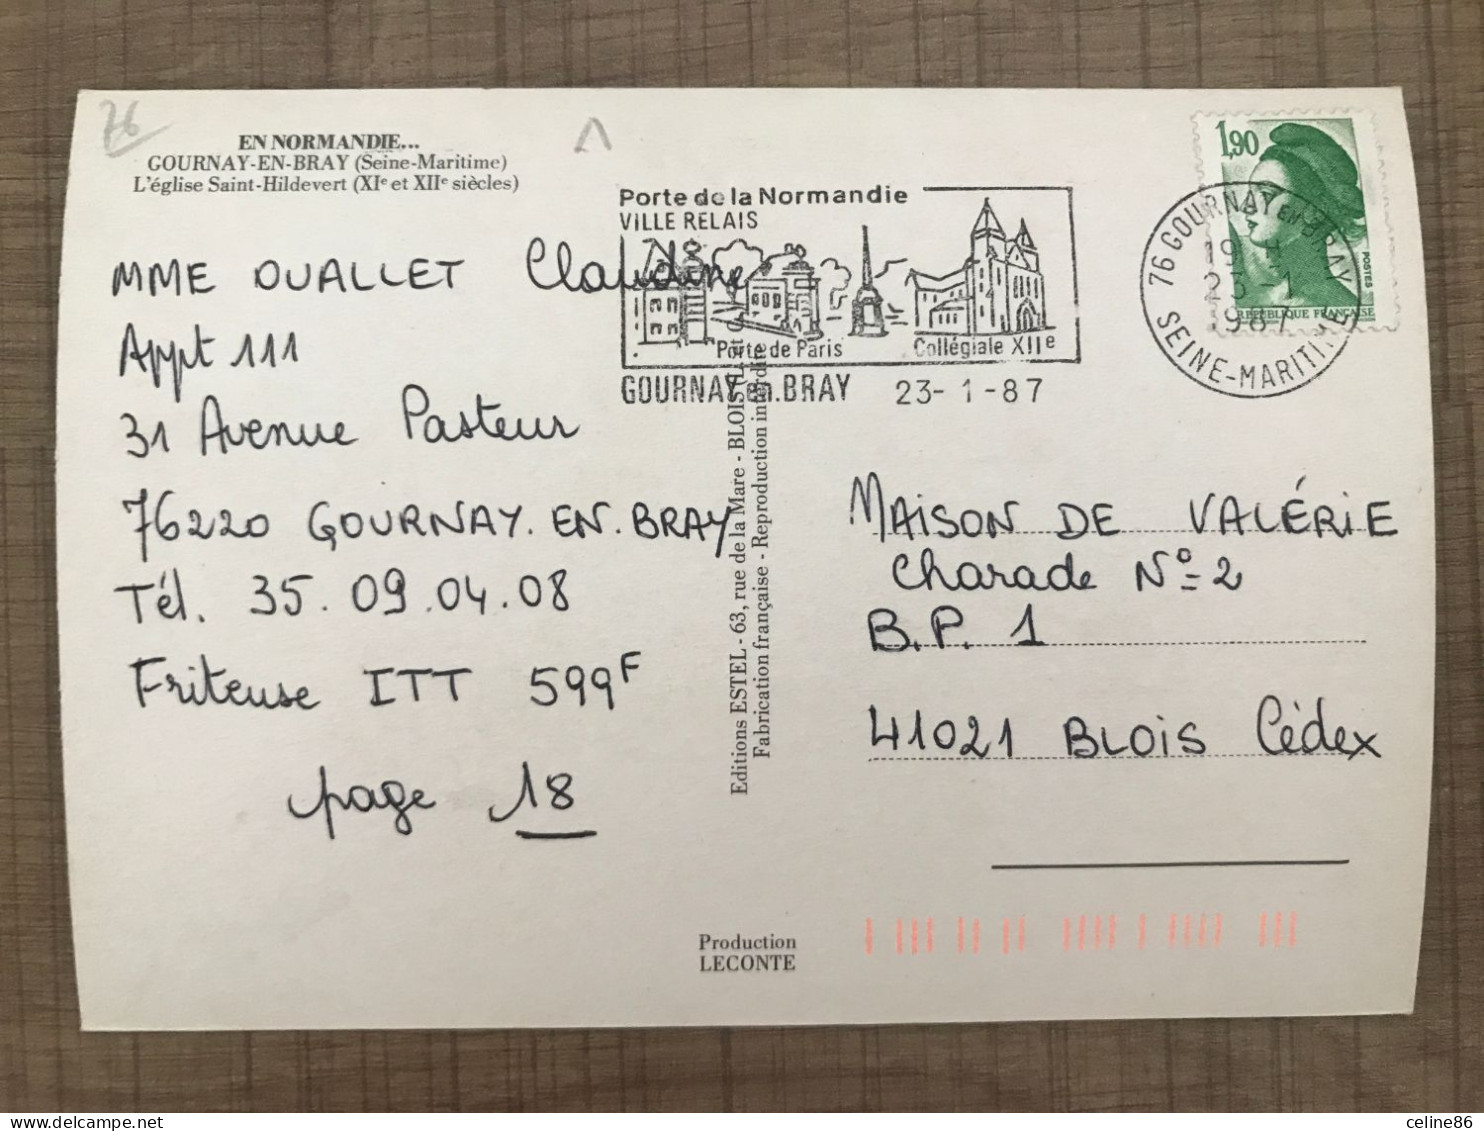 76
EN NORMANDIE...
GOURNAY-EN-BRAY (Seine-Maritime)
L'église Saint-Hildevert (XIe et XIIe siècles)
MME OUALLET Claudine
Appt 111
31 Avenue Pasteur
76220 GOURNAY.EN.BRAY
Tél. 35.09.04.08
Friteuse ITT 599F
page 18
Porte de la Normandie
VILLE RELAIS
Porte de Paris
Collégiale XIIe
GOURNAY en BRAY 23-1-87
1,90
POSTES
REPUBLIQUE FRANÇAISE
76 GOURNAY EN BRAY
19
23-1
1987
SEINE-MARITIME
Editions ESTEL - 63, rue de la Mare - BLOIS
Fabrication française - Reproduction interdite
MAISON DE VALÉRIE
Charade No 2
B.P. 1
41021 BLOIS Cédex
Production
LECONTE
celine86